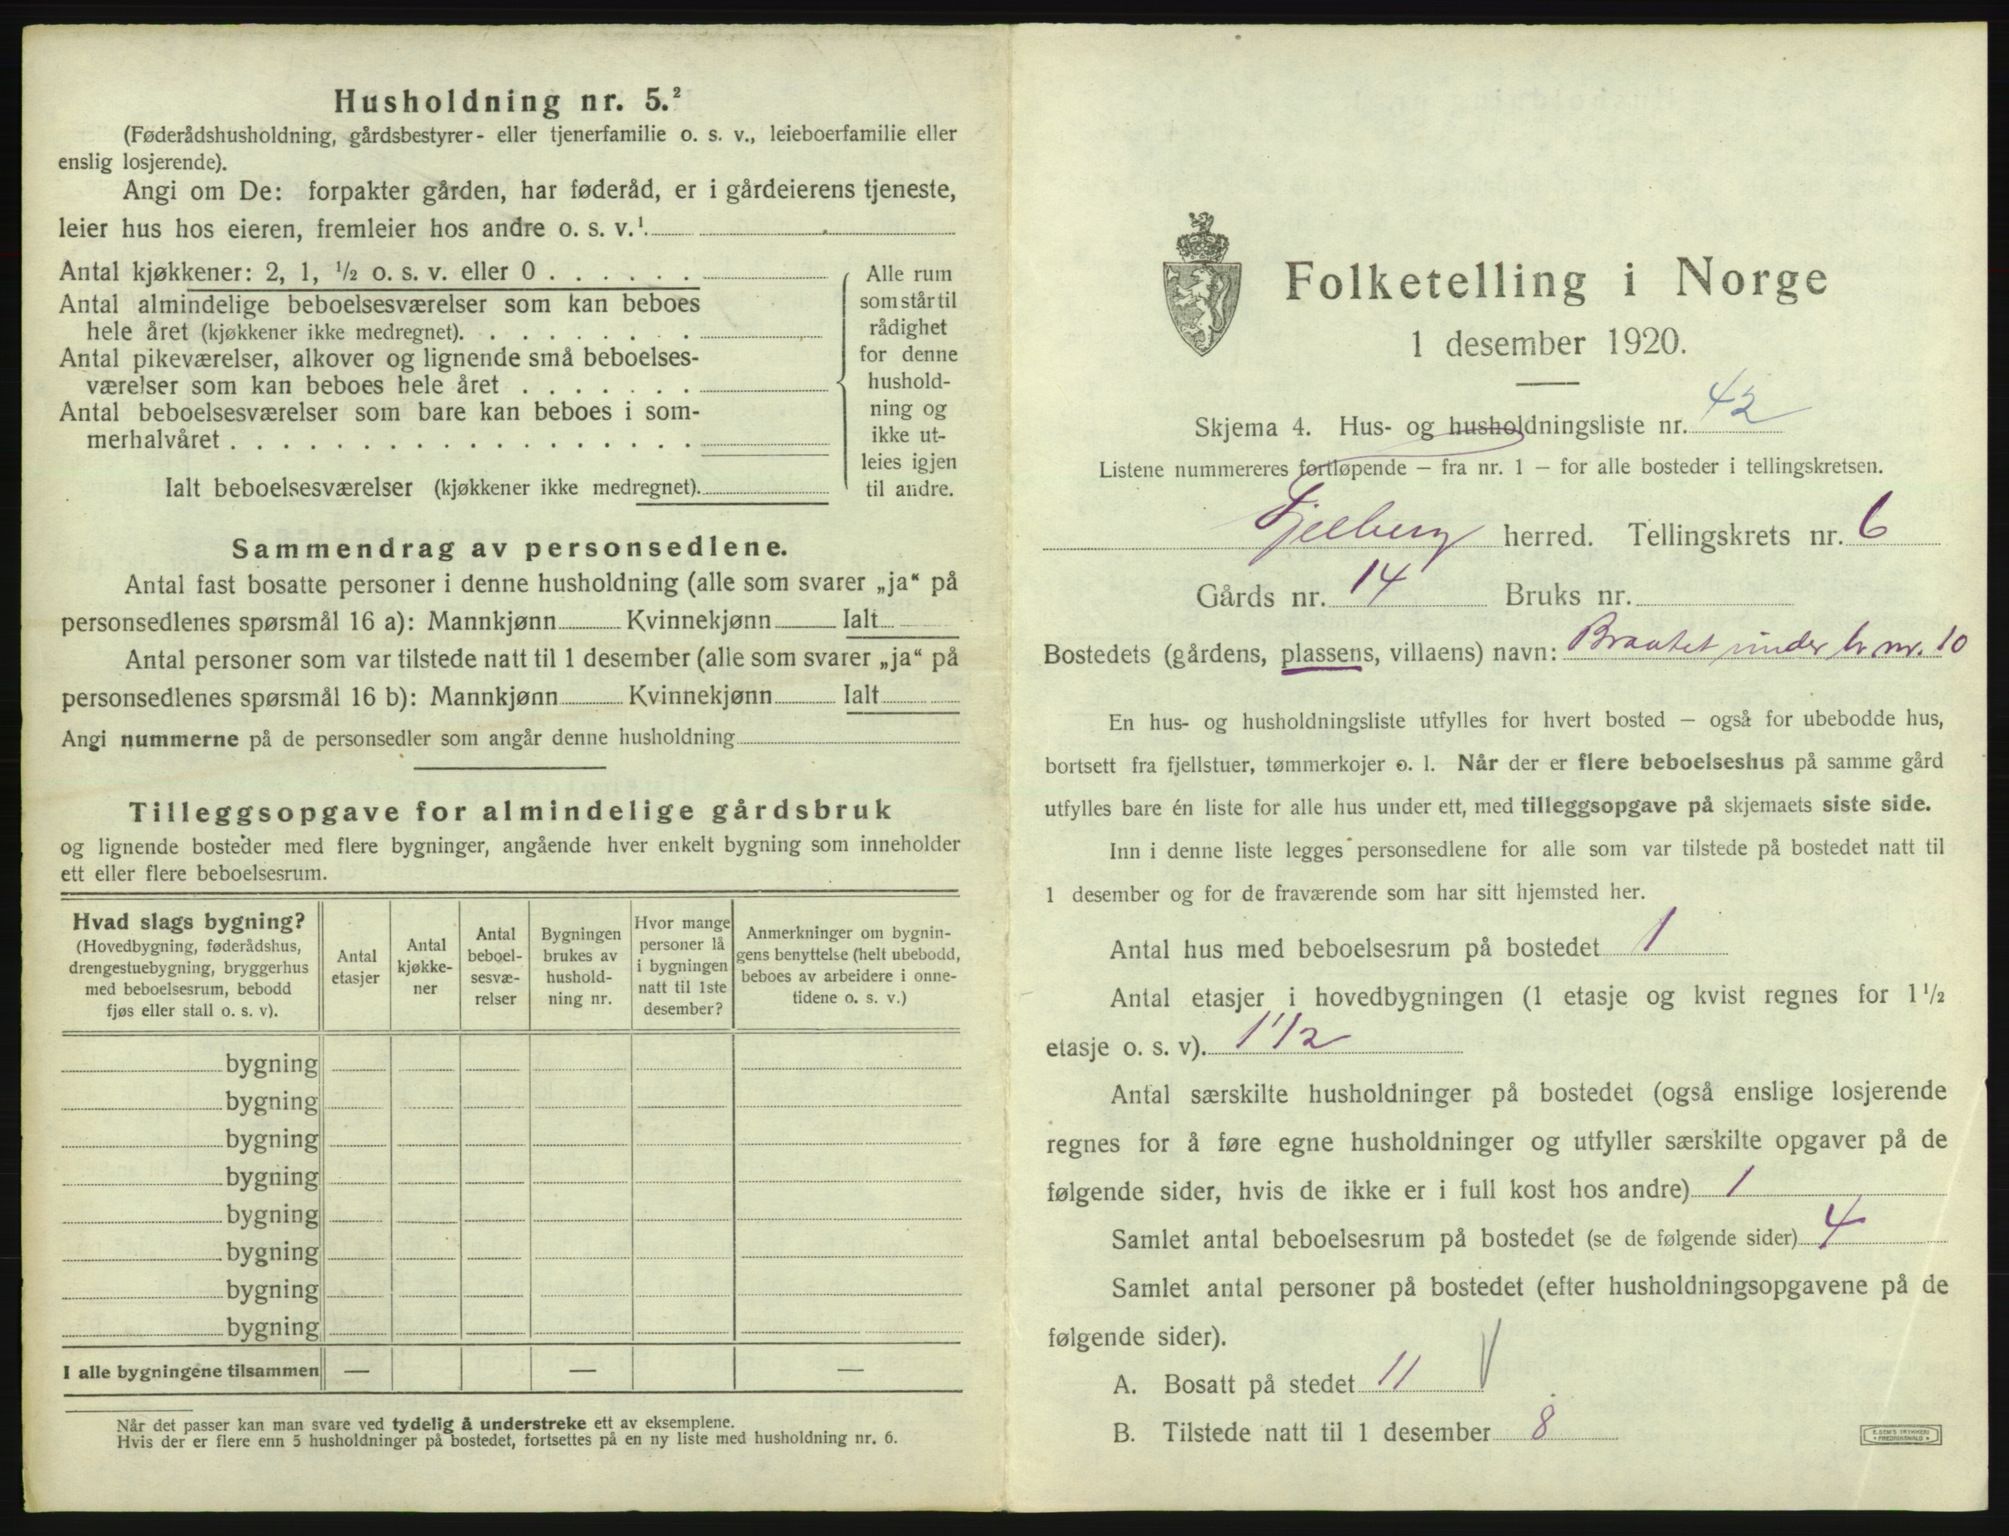 Husholdning nr. 5.²
(Føderådshusholdning, gårdsbestyrer- eller tjenerfamilie o. s. v., leieboerfamilie eller
enslig losjerende).
Angi om De: forpakter gården, har føderåd, er i gårdeierens tjeneste,
leier hus hos eieren, fremleier hos andre o. s. v.¹
Antal kjøkkener: 2, 1, ½ o. s. v. eller 0
Antal almindelige beboelsesværelser som kan beboes
hele året (kjøkkener ikke medregnet).
Antal pikeværelser, alkover og lignende små beboelses-
værelser som kan beboes hele året
Antal beboelsesværelser som bare kan beboes i som-
merhalvåret
Ialt beboelsesværelser (kjøkkener ikke medregnet).
Alle rum
som står til
rådighet
for denne
hushold-
ning og
ikke ut-
leies igjen
til andre.
Sammendrag av personsedlene.
Antal fast bosatte personer i denne husholdning (alle som svarer „ja“ på
personsedlenes spørsmål 16 a): Mannkjønn Kvinnekjønn Ialt
Antal personer som var tilstede natt til 1 desember (alle som svarer „ja“ på
personsedlenes spørsmål 16 b): Mannkjønn Kvinnekjønn Ialt
Angi nummerne på de personsedler som angår denne husholdning
Tilleggsopgave for almindelige gårdsbruk
og lignende bosteder med flere bygninger, angående hver enkelt bygning som inneholder
ett eller flere beboelsesrum.
Hvad slags bygning?
(Hovedbygning, føderådshus,
drengestuebygning, bryggerhus
med beboelsesrum, bebodd
fjøs eller stall o. s. v).
Antal
etasjer
Antal
kjøkke-
ner
Antal
beboel-
sesvæ-
relser
Bygningen
brukes av
hushold-
ning nr.
Hvor mange
personer lå
i bygningen
natt til 1ste
desember?
Anmerkninger om bygnin-
gens benyttelse (helt ubebodd,
beboes av arbeidere i onne-
tidene o. s. v.)
bygning
bygning
bygning
bygning
bygning
bygning
bygning
bygning
I alle bygningene tilsammen — — —
Når det passer kan man svare ved tydelig å understreke ett av eksemplene.
Hvis der er flere enn 5 husholdninger på bostedet, fortsettes på en ny liste med husholdning nr. 6.
Folketelling i Norge
1 desember 1920.
Skjema 4. Hus- og husholdningsliste nr. 42
Listene nummereres fortløpende — fra nr. 1 — for alle bosteder i tellingskretsen.
Fjelberg herred. Tellingskrets nr. 6
Gårds nr. 14 Bruks nr.
Bostedets (gårdens, plassens, villaens) navn: Braatet under br. nr. 10
En hus- og husholdningsliste utfylles for hvert bosted — også for ubebodde hus,
bortsett fra fjellstuer, tømmerkojer o. l. Når der er flere beboelseshus på samme gård
utfylles bare én liste for alle hus under ett, med tilleggsopgave på skjemaets siste side.
Inn i denne liste legges personsedlene for alle som var tilstede på bostedet natt til
1 desember og for de fraværende som har sitt hjemsted her.
Antal hus med beboelsesrum på bostedet 1
Antal etasjer i hovedbygningen (1 etasje og kvist regnes for 1½
etasje o. s. v). 1 1/2
Antal særskilte husholdninger på bostedet (også enslige losjerende
regnes for å føre egne husholdninger og utfyller særskilte opgaver på de
følgende sider, hvis de ikke er i full kost hos andre) 1
Samlet antal beboelsesrum på bostedet (se de følgende sider) 4
Samlet antal personer på bostedet (efter husholdningsopgavene på de
følgende sider).
A. Bosatt på stedet 11
B. Tilstede natt til 1 desember 8